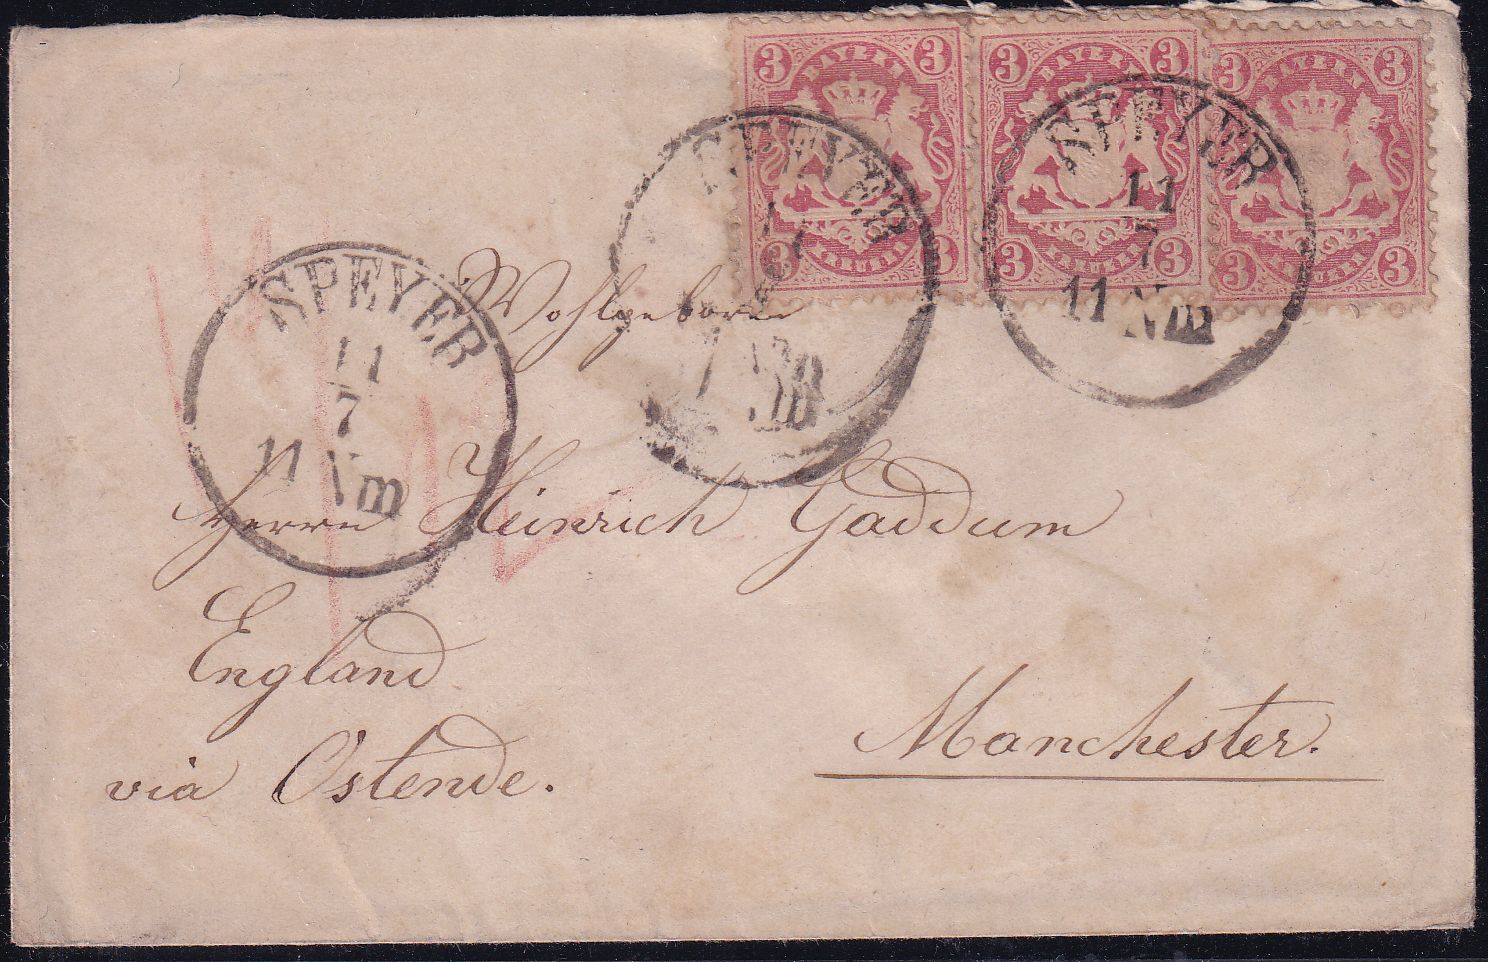 3 BAYERN 3
3 KREUZER 3
3 BAYERN 3
3 KREUZER 3
3 BAYERN 3
3 KREUZER 3
SPEYER
11
7
SPEYER
11
7
11 Nm
SPEYER
11
7
11 Nm
Wohlgeboren
Herrn Heinrich Gaddum
England
Manchester.
via Ostende.